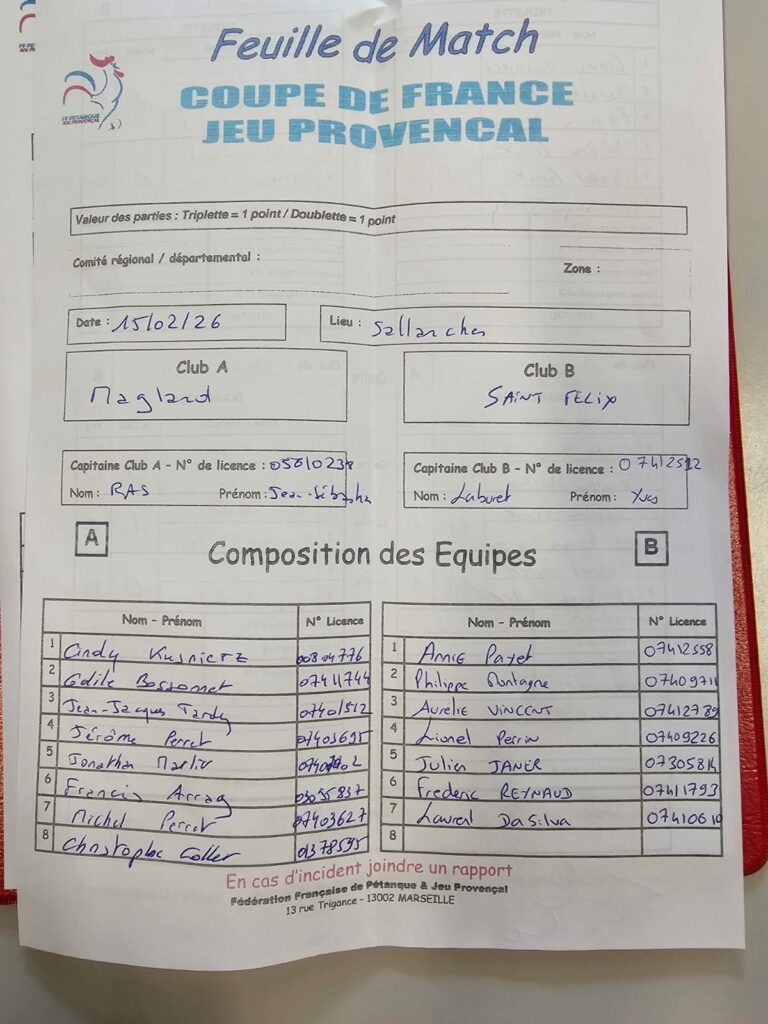 Feuille de Match
COUPE DE FRANCE
JEU PROVENCAL
FF PÉTANQUE
JEU PROVENÇAL
Valeur des parties : Triplette = 1 point / Doublette = 1 point
Comité régional / départemental :
Zone :
Date : 15/02/26
Lieu : Sallanches
Club A
Magland
Club B
SAINT FELIX
Capitaine Club A - N° de licence :
Nom : RAS Prénom : Jean-Sébastien
Capitaine Club B - N° de licence : 07412512
Nom : Laburet Prénom : Yves
A
Composition des Equipes
B
Nom - Prénom N° Licence
1 Cindy Kusnierz 00804776
2 Odile Bossonnet 07411744
3 Jean-Jacques Tardy 07401512
4 Jérôme Perret 07403695
5 Jonathan Marlier
6 Francis Arrag 03035837
7 Michel Perret 07403627
8 Christophe Coller 01378595
Nom - Prénom N° Licence
1 Annie Payet 07412558
2 Philippe Montagne 07409711
3 Aurelie VINCENT 07412789
4 Lionel Perrin 07409226
5 Julien JANER 07305814
6 Frederic REYNAUD 07411793
7 Laurent DaSilva 07410610
8
En cas d'incident joindre un rapport
Fédération Française de Pétanque & Jeu Provençal
13 rue Trigance - 13002 MARSEILLE